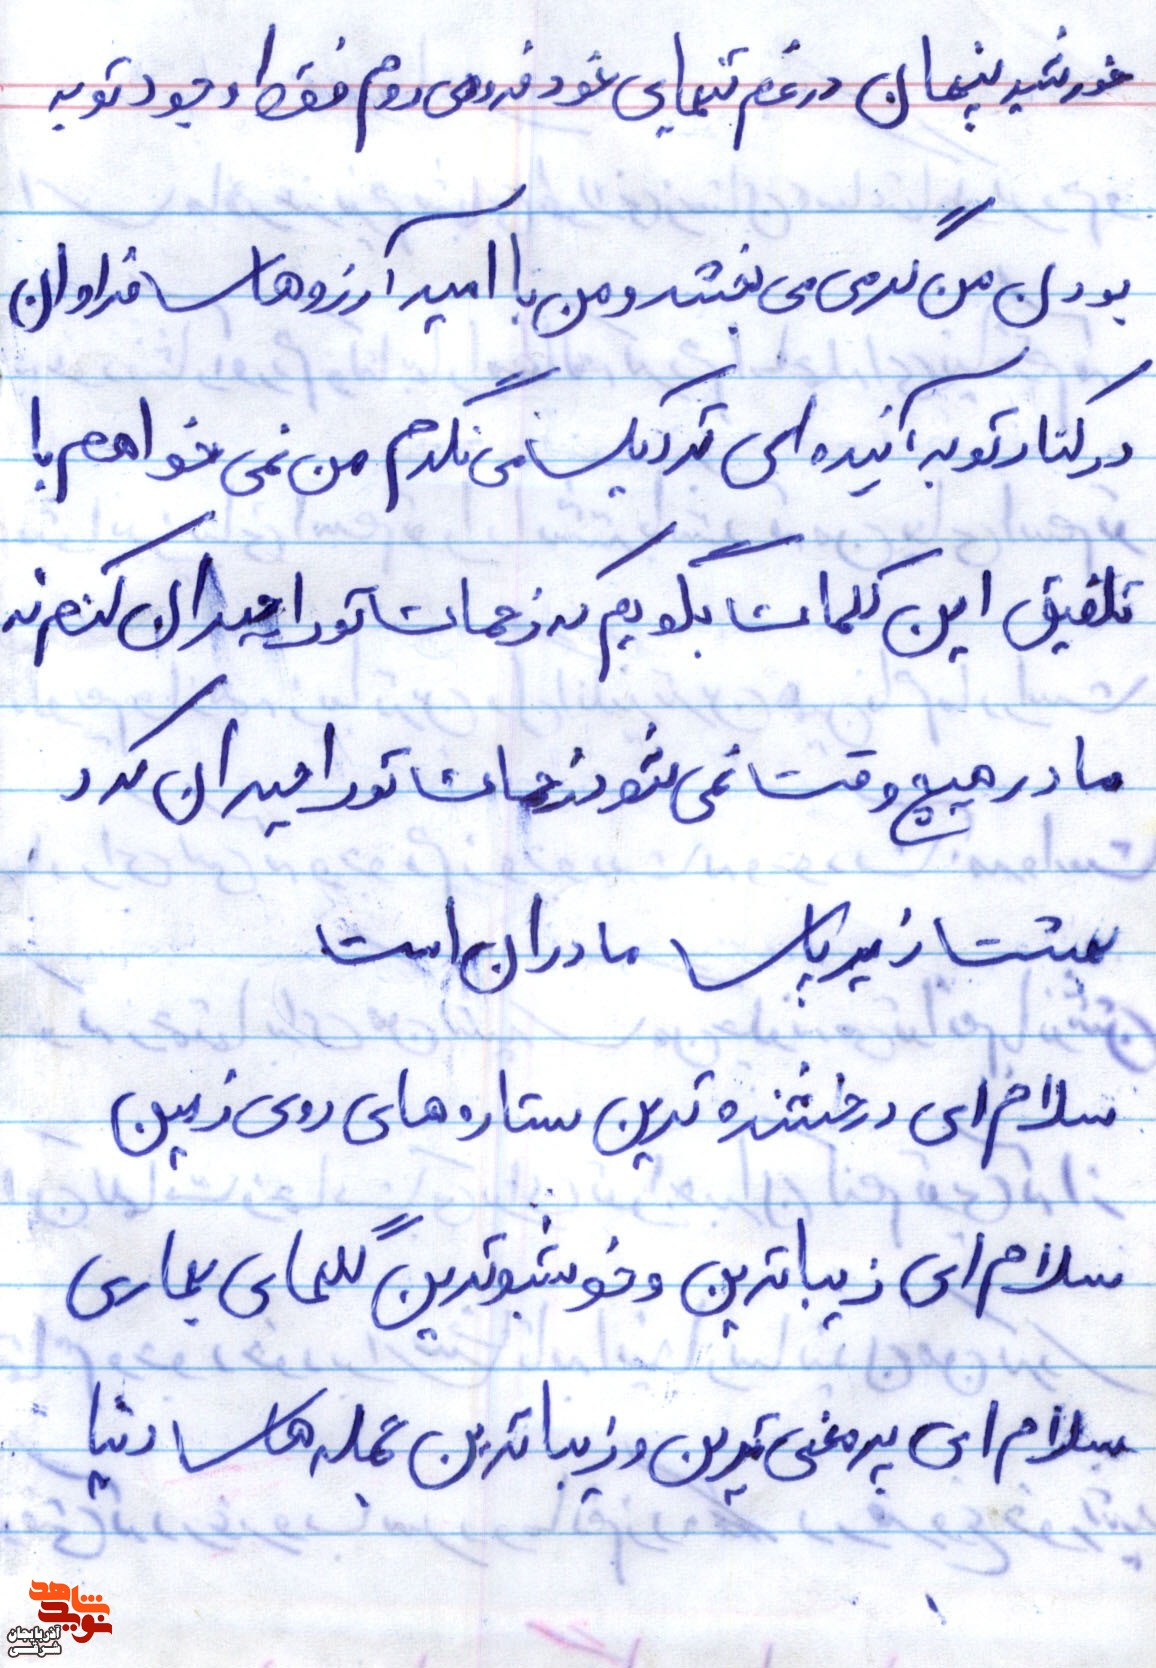 خورشید پنهان در غم تنهایی خود فرو می روم فقط وجود تو به
بودن من گرمی می بخشد و من با امید آرزوهای فراوان
در کنار تو به آینده ای نزدیک می نگرم من نمی خواهم با
تلفیق این کلمات بگویم که زحمات تو را جبران کنم نه
مادر هیچ وقت نمی شود زحمات تو را جبران کرد
بهشت زیر پای مادران است
سلام ای درخشنده ترین ستاره های روی زمین
سلام ای زیباترین و خوشبوترین گلهای بهاری
سلام ای پر معنی ترین و زیباترین جمله های دنیا
نوید شاهد
آذربایجان شرقی